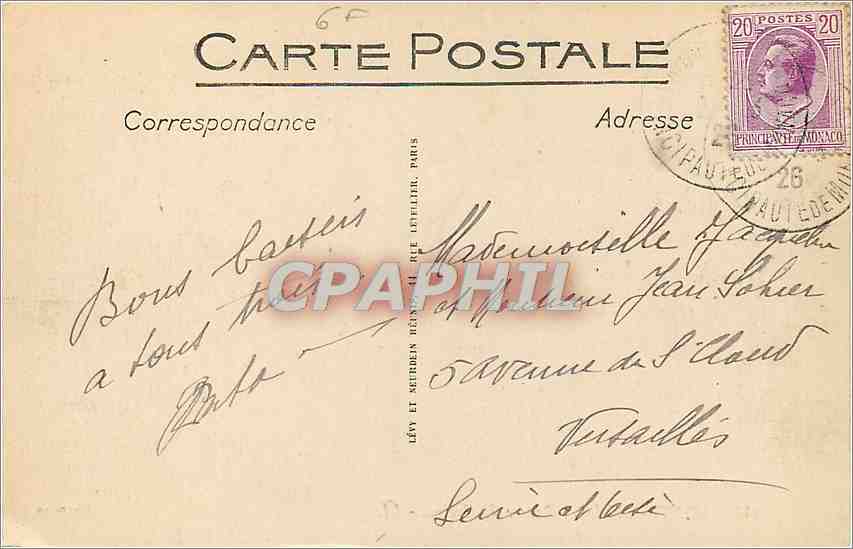 6F
CARTE POSTALE
Correspondance
Adresse
20 POSTES 20
PRINCIPAUTÉ DE MONACO
26
Bons baisers
a tous trois
LÉVY ET NEURDEIN RÉUNIS, 44, RUE LETELLIER, PARIS
CPAPHIL
Mademoiselle Jacqueline
et Monsieur Jean Sohier
5 avenue de St Cloud
Versailles
Seine et Oise